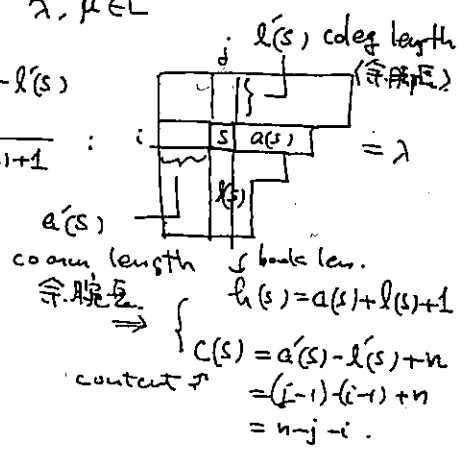 λ, μ ∈ L
j  l'(s) coleg length
(余脚長)
- l'(s)
)+1 : i  s  a(s)  = λ
l(s)
a'(s)
coarm length
余腕長
hook len.
h(s) = a(s)+l(s)+1
⇒ { c(s) = a'(s)-l'(s)+n
content ↗ = (j-1)-(i-1)+n
= n-j-i.